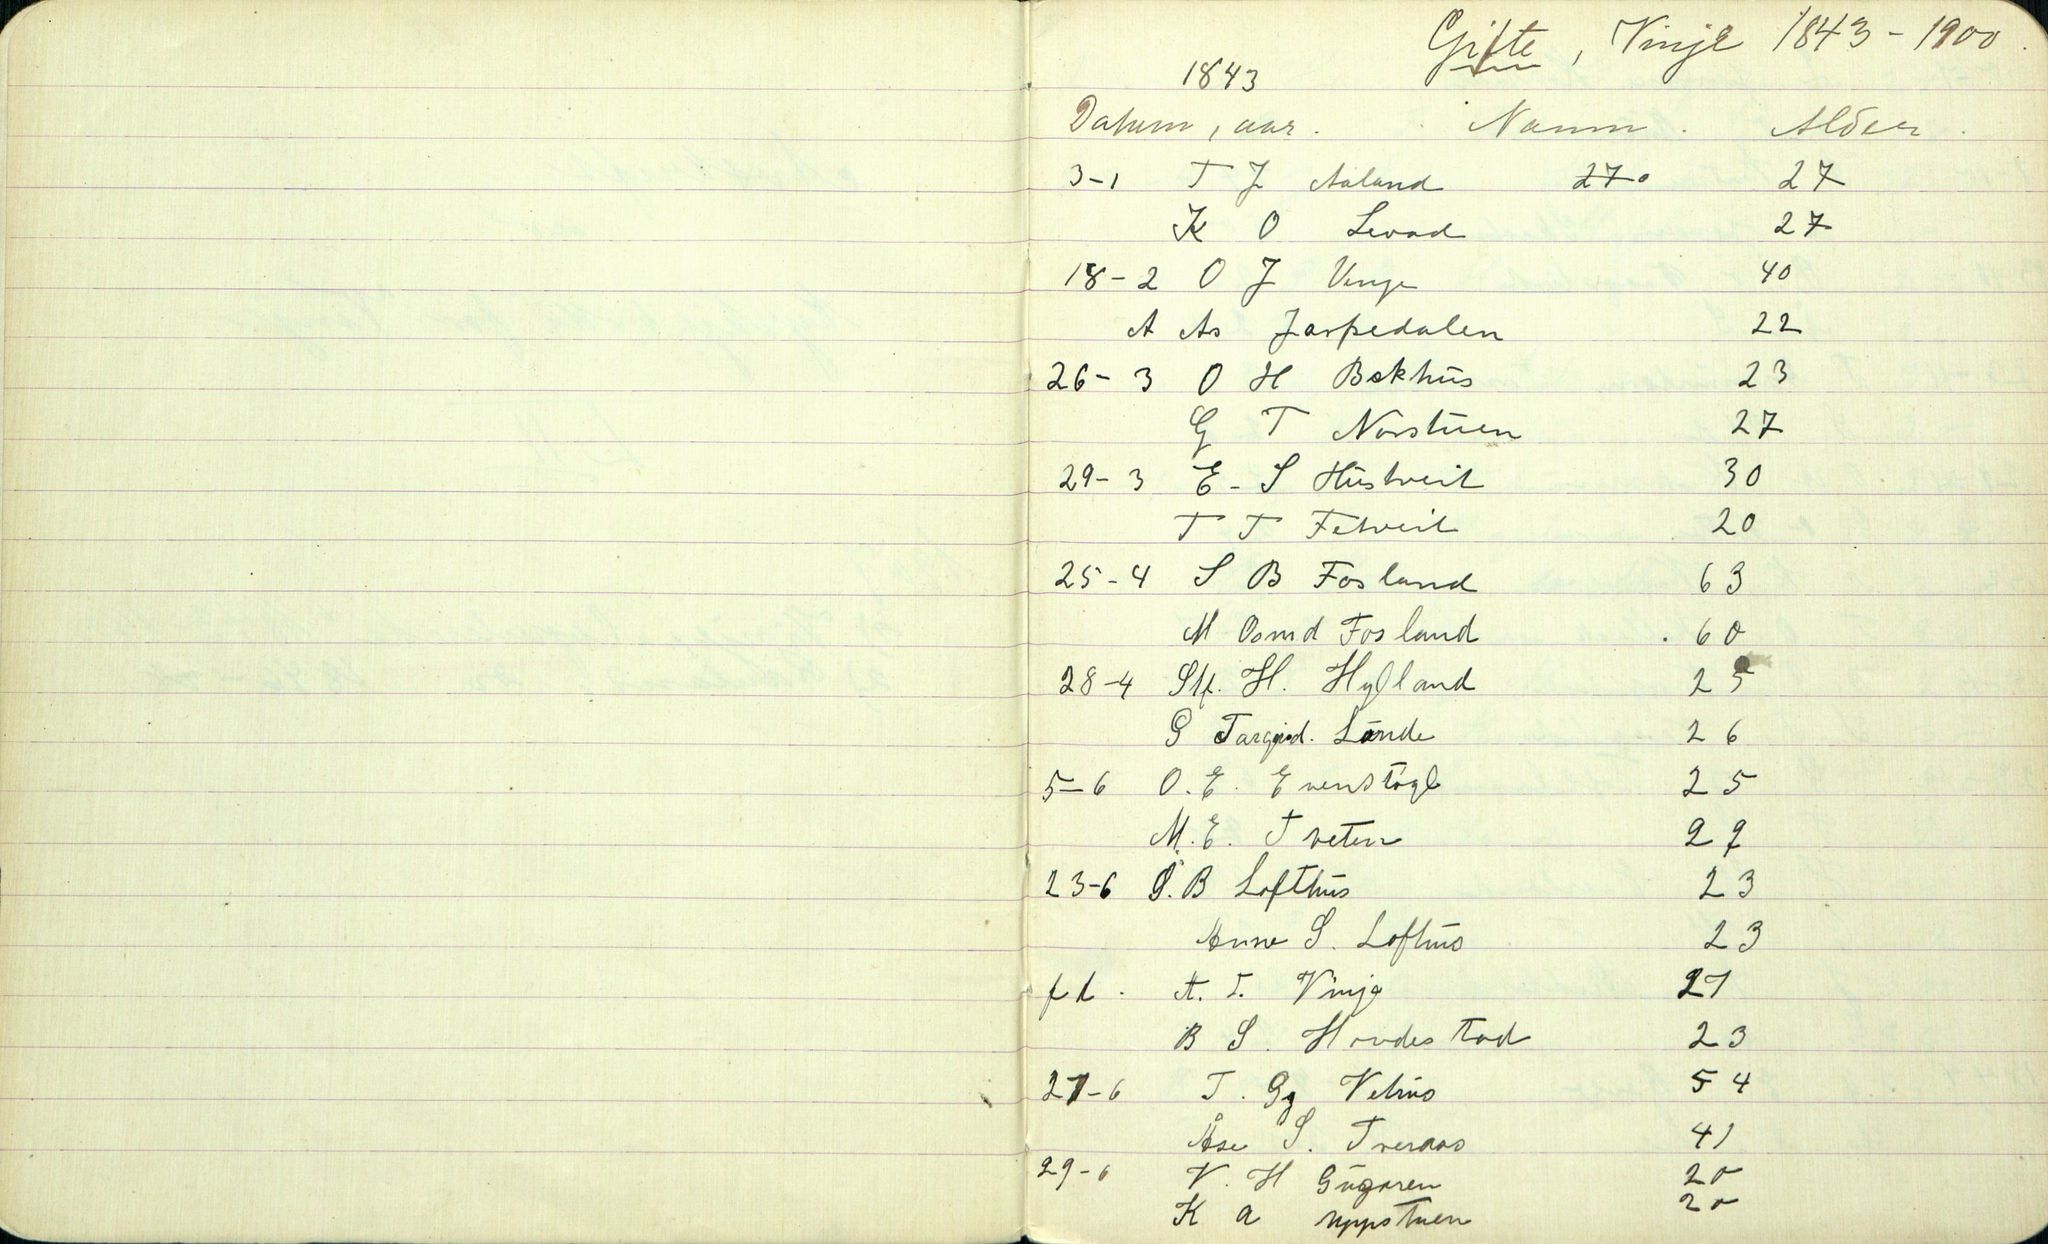 Gifte, Vinje 1843-1900.
1843
Datum, aar. Namn. Alder.
3-1 T J Aaland 27 27
K O Levad 27
18-2 O J Vinje 40
A As Jarpedalen 22
26-3 O H Bækhus 23
G T Norstuen 27
29-3 E-S Hustveit 30
T T Fetveit 20
25-4 S B Fosland 63
M Osmd Fosland 60
28-4 Stf. H. Hylland 25
G Targjd. Lunde 26
5-6 O. E. Evenstøyl 25
M. E. Tveten 27
23-6 O. B Lofthus 23
Anne S. Lofthus 23
A. T. Vinje 27
B S. Hovdestad 23
27-6 T. Gj Vehus 54
Åse S. Tveraas 41
29-6 V. H Gugaren 20
K a Uppstuen 20